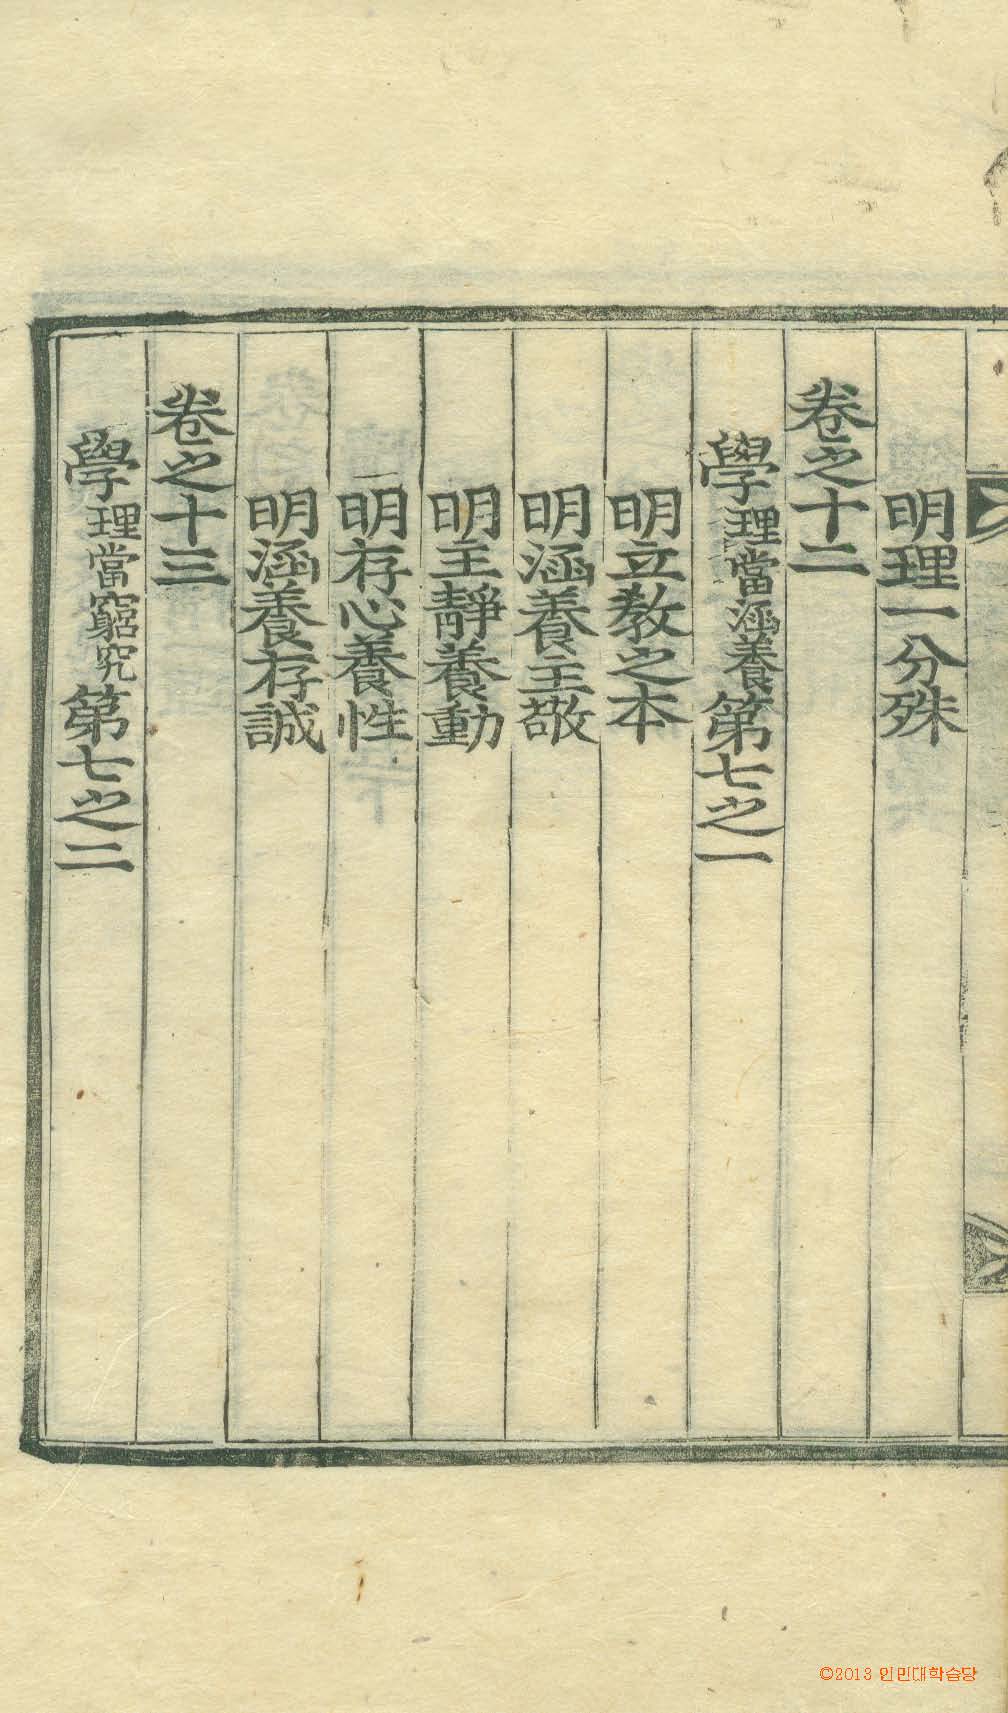 明理一分殊
卷之十二
學理當涵養第七之一
明立教之本
明涵養主敬
明主靜養動
明存心養性
明涵養存誠
卷之十三
學理當窮究第七之二
©2013 인민대학습당